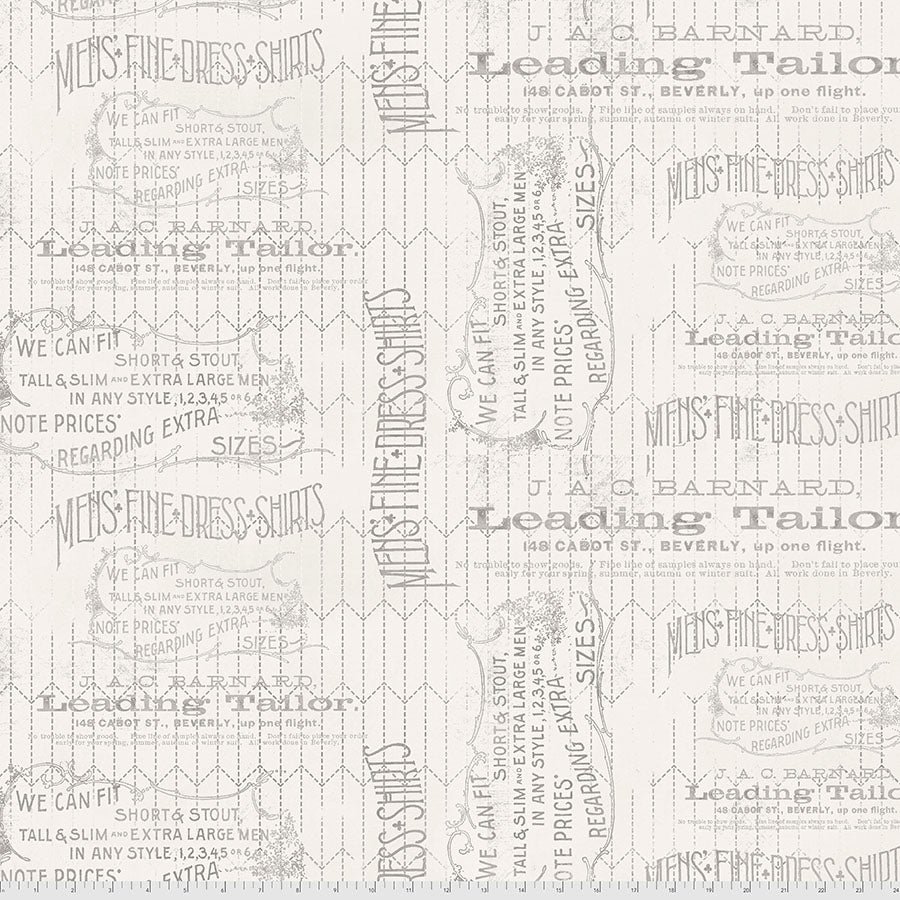 REGARD
MENS' FINE DRESS SHIRTS
WE CAN FIT
SHORT & STOUT,
TALL & SLIM AND EXTRA LARGE MEN
IN ANY STYLE, 1,2,3,4,5 OR 6
NOTE PRICES
REGARDING EXTRA
SIZES
J. A. C. BARNARD,
Leading Tailor.
148 CABOT ST., BEVERLY, up one flight.
No trouble to show goods. Fine line of samples always on hand. Don't fail to place your order
early for your spring, summer, autumn or winter suit. All work done in Beverly.
WE CAN FIT
SHORT & STOUT,
TALL & SLIM AND EXTRA LARGE MEN
IN ANY STYLE, 1,2,3,4,5 OR 6
NOTE PRICES
REGARDING EXTRA
SIZES
MENS' FINE DRESS SHIRTS
WE CAN FIT
SHORT & STOUT,
TALL & SLIM AND EXTRA LARGE MEN
IN ANY STYLE, 1,2,3,4,5 OR 6
NOTE PRICES
REGARDING EXTRA
SIZES
J. A. C. BARNARD,
Leading Tailor.
148 CABOT ST., BEVERLY, up one flight.
No trouble to show goods. Fine line of samples always on hand. Don't fail to place your order
early for your spring, summer, autumn or winter suit. All work done in Beverly.
WE CAN FIT
SHORT & STOUT,
TALL & SLIM AND EXTRA LARGE MEN
IN ANY STYLE, 1,2,3,4,5 OR 6
NOTE PRICES
EXTRA
MENS' FINE
MENS' FINE DRESS SHIRTS
DRESS SHIRTS
J. A. C. BARNARD,
Leading Tailor
148 CABOT ST., BEVERLY, up one flight.
No trouble to show goods. Fine line of samples always on hand. Don't fail to place your
early for your spring, summer, autumn or winter suit. All work done in Beverly.
WE CAN FIT
SHORT & STOUT,
TALL & SLIM AND EXTRA LARGE MEN
IN ANY STYLE, 1,2,3,4,5 OR 6
NOTE PRICES
REGARDING EXTRA
SIZES
MENS' FINE DRESS SHIRTS
WE CAN FIT
SHORT & STOUT,
TALL & SLIM AND EXTRA LARGE MEN
IN ANY STYLE, 1,2,3,4,5 OR 6
NOTE PRICES
REGARDING EXTRA
SIZES
J. A. C. BARNARD
Leading Tailo
148 CABOT ST., BEVERLY, up one flight.
No trouble to show goods. Fine line of samples always on hand. Don't fail to pla
early for your spring, summer, autumn or winter suit. All work done in Beve
MENS' FINE DRESS SHIRT
J. A. C. BARNARD,
Leading Tailor
148 CABOT ST., BEVERLY, up one flight.
No trouble to show goods. Fine line of samples always on hand. Don't fail to place your
early for your spring, summer, autumn or winter suit. All work done in Beverly.
WE CAN FIT
SHORT & STOUT,
TALL & SLIM AND EXTRA LARGE MEN
IN ANY STYLE, 1,2,3,4,5 OR 6
NOTE PRICES
REGARDING EXTRA
SIZES
MENS' FINE DRESS SHIRTS
WE CAN FIT
SHORT & STOUT,
TALL & SLIM AND EXTRA LARGE MEN
IN ANY STYLE, 1,2,3,4,5 OR 6
NOTE PRICES
REGARDING EXTRA
SIZES
J. A. C. BARNARD
Leading Tailo
148 CABOT ST., BEVERLY, up one flight.
No trouble to show goods. Fine line of samples always on hand. Don't fail to pla
early for your spring, summer, autumn or winter suit. All work done in Beve
MENS' FINE DRESS SHIRT
1 2 3 4 5 6 7 8 9 10 11 12 13 14 15 16 17 18 19 20 21 22 23 24